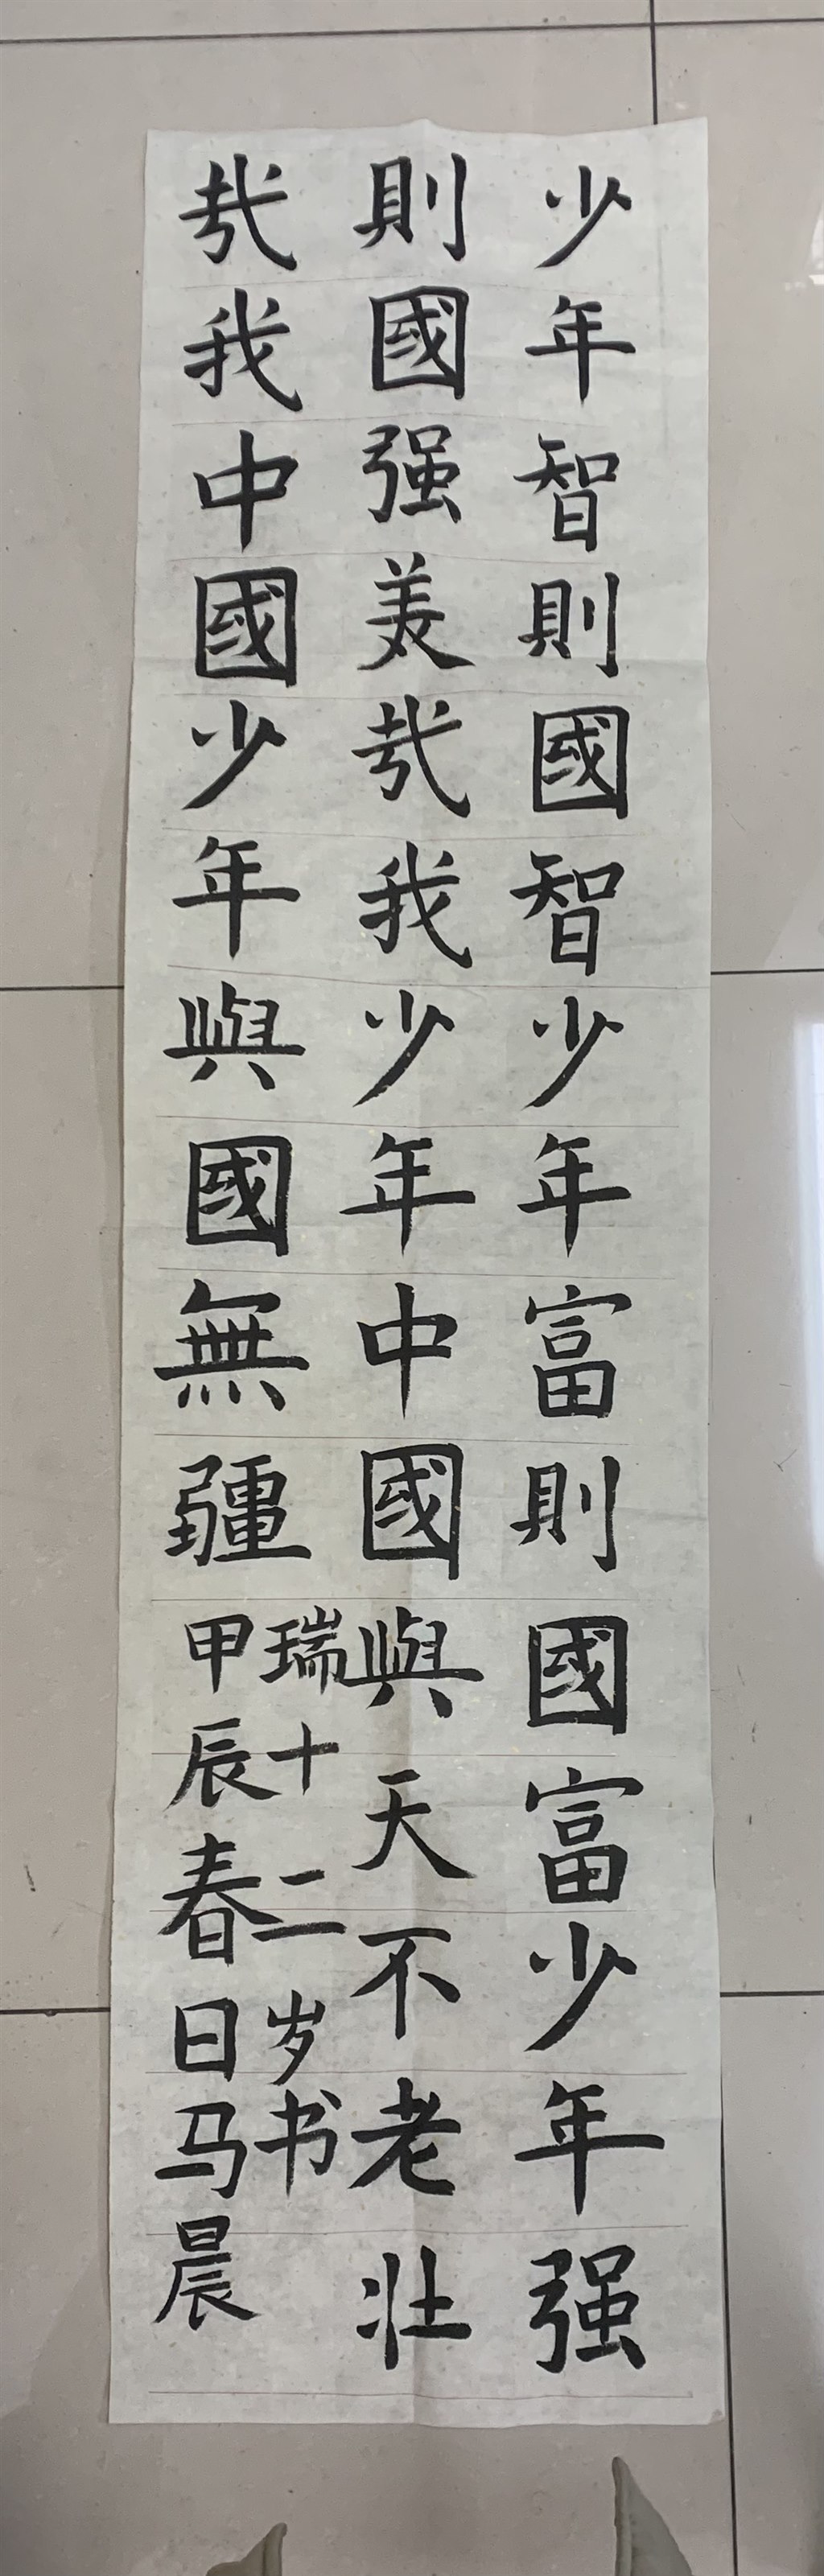 少年智則國智少年富則國富少年强
則國强美㢤我少年中國與天不老壯
㢤我中國少年與國無疆
甲辰春日马晨
瑞十二岁书